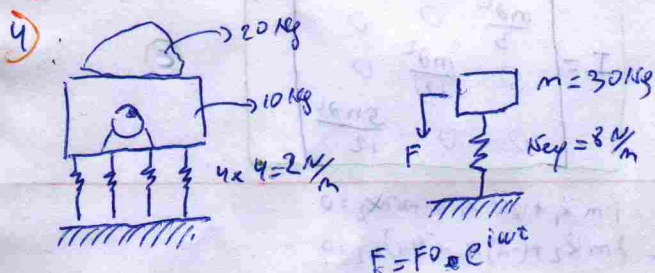 4)
20 kg
10 kg
4 x 4 = 2 N/m
m = 30 kg
F
Keq = 8 N/m
F = F0 e^iωt